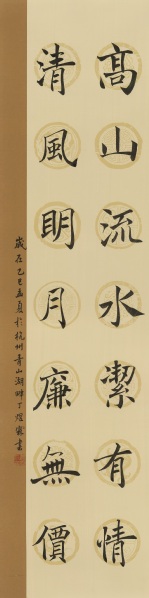 高山流水潔有情
清風明月廉無價
歲在乙巳孟夏於杭州青山湖畔丁煜書